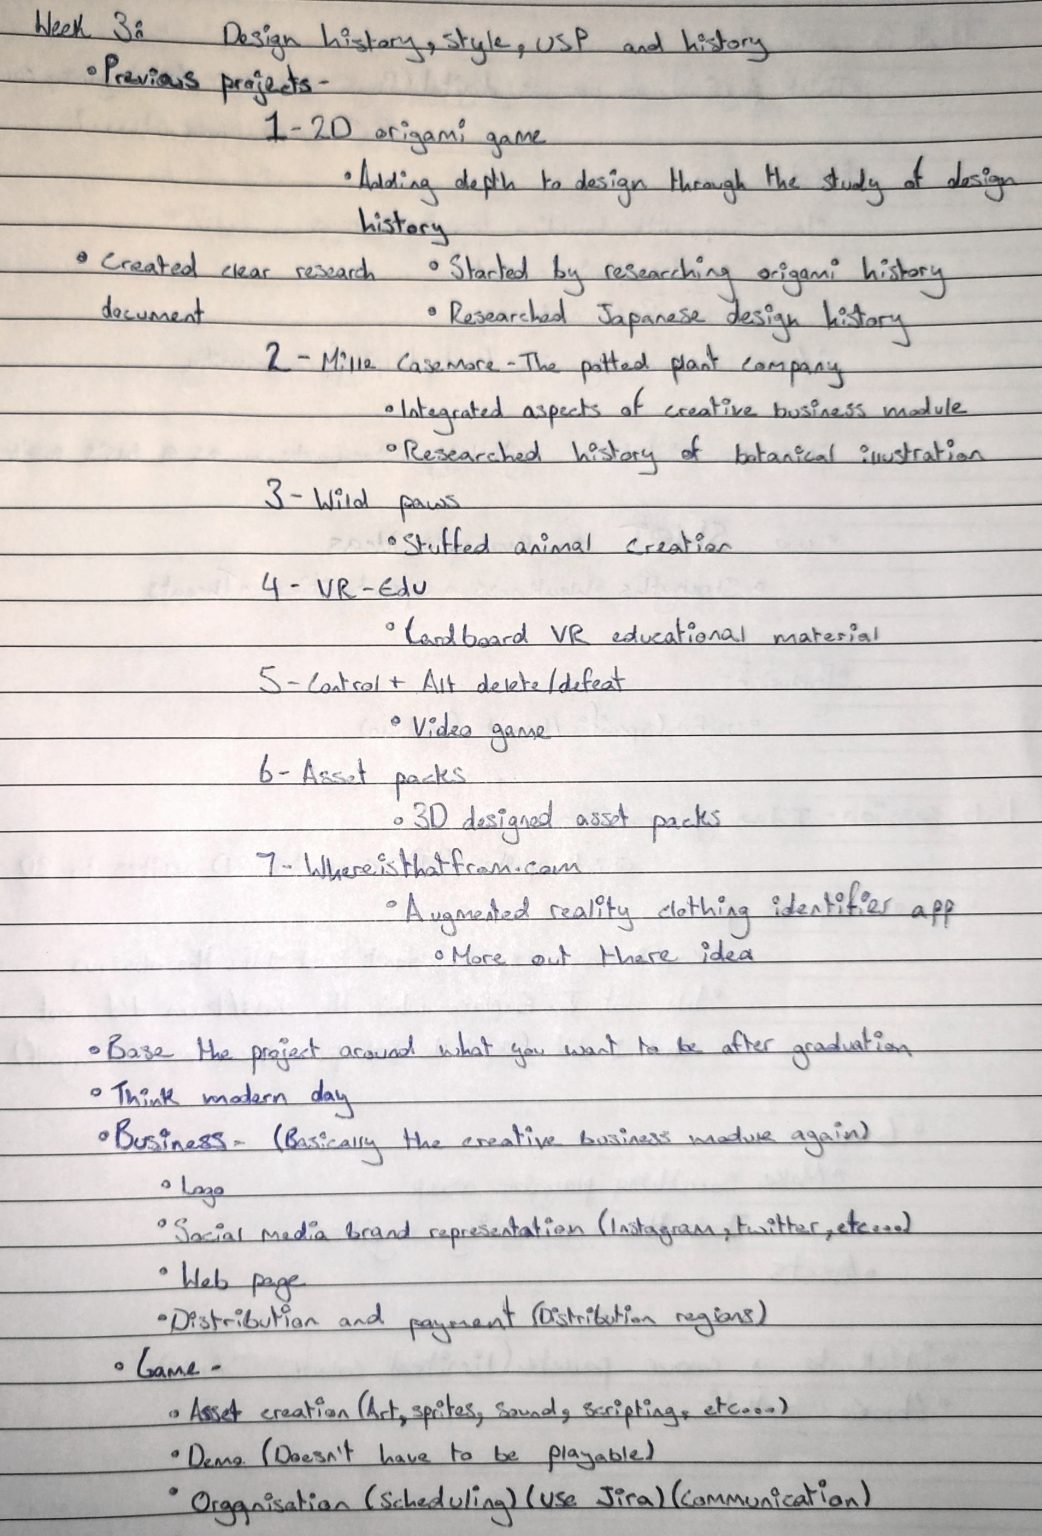 Week 3: Design history, style, USP and history
• Previous projects-
1 - 2D origami game
• Adding depth to design through the study of design
history
• Created clear research • Started by researching origami history
document • Researched Japanese design history
2 - Mille Casemore - The potted plant company
• Integrated aspects of creative business module
• Researched history of botanical illustration
3 - Wild paws
• Stuffed animal creation
4 - VR-Edu
• Cardboard VR educational material
5 - Control + Alt delete/defeat
• Video game
6 - Asset packs
• 3D designed asset packs
7 - Whereisthatfrom.com
• Augmented reality clothing identifier app
• More out there idea
• Base the project around what you want to be after graduation
• Think modern day
• Business - (Basically the creative business module again)
• Logo
• Social media brand representation (Instagram, twitter, etc....)
• Web page
• Distribution and payment (Distribution regions)
• Game -
• Asset creation (Art, sprites, sound, scripting, etc....)
• Demo (Doesn't have to be playable)
• Organisation (Scheduling) (Use Jira) (Communication)